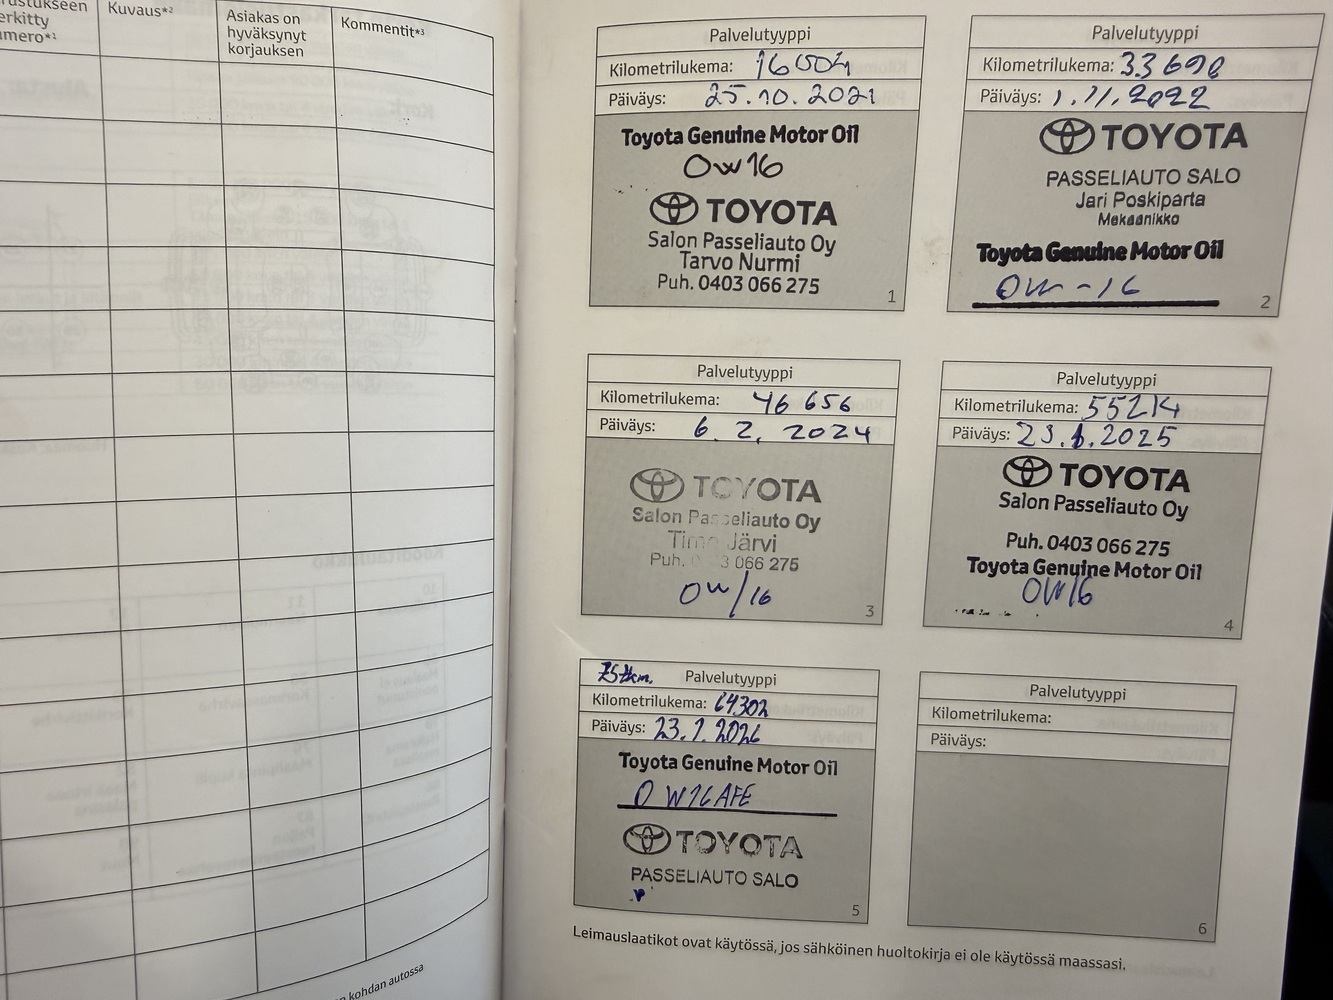 Kuvaus*²
Asiakas on
hyväksynyt
korjauksen
Kommentit*³
n kohdan autossa
Palvelutyyppi
Kilometrilukema: 16004
Päiväys: 25.10.2021
Toyota Genuine Motor Oil
0w16
TOYOTA
Salon Passeliauto Oy
Tarvo Nurmi
Puh. 0403 066 275
1
Palvelutyyppi
Kilometrilukema: 33690
Päiväys: 1.11.2022
TOYOTA
PASSELIAUTO SALO
Jari Poskiparta
Mekaanikko
Toyota Genuine Motor Oil
0W-16
2
Palvelutyyppi
Kilometrilukema: 46 656
Päiväys: 6. 2. 2024
TOYOTA
Salon Passeliauto Oy
Timo Järvi
Puh. 0403 066 275
0W/16
3
Palvelutyyppi
Kilometrilukema: 55214
Päiväys: 23.1.2025
TOYOTA
Salon Passeliauto Oy
Puh. 0403 066 275
Toyota Genuine Motor Oil
0W16
4
75tkm. Palvelutyyppi
Kilometrilukema: 64302
Päiväys: 23.1.2026
Toyota Genuine Motor Oil
0W16AFE
TOYOTA
PASSELIAUTO SALO
5
Palvelutyyppi
Kilometrilukema:
Päiväys:
6
Leimauslaatikot ovat käytössä, jos sähköinen huoltokirja ei ole käytössä maassasi.